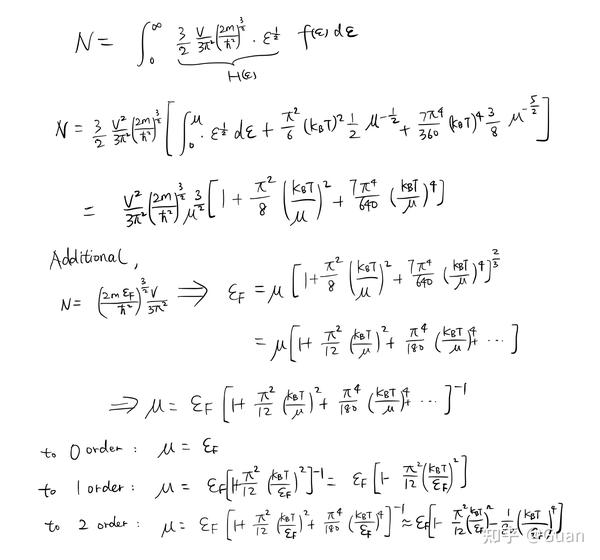 N = ∫₀^∞ 3/2 V/3π² (2m/ħ²)^{3/2} · ε^{1/2} f(ε) dε
H(ε)
N = 3/2 V²/3π² (2m/ħ²)^{3/2} [ ∫₀^μ · ε^{1/2} dε + π²/6 (k_BT)² 1/2 μ^{-1/2} + 7π⁴/360 (k_BT)⁴ 3/8 μ^{-5/2} ]
= V²/3π² (2m/ħ²)^{3/2} μ^{3/2} [ 1 + π²/8 (k_BT/μ)² + 7π⁴/640 (k_BT/μ)⁴ ]
Additional,
N = (2mε_F/ħ²)^{3/2} V/3π² ⟹ ε_F = μ [ 1 + π²/8 (k_BT/μ)² + 7π⁴/640 (k_BT/μ)⁴ ]^{2/3}
= μ [ 1 + π²/12 (k_BT/μ)² + π⁴/180 (k_BT/μ)⁴ + ··· ]
⟹ μ = ε_F [ 1 + π²/12 (k_BT/μ)² + π⁴/180 (k_BT/μ)⁴ + ··· ]^{-1}
to 0 order : μ = ε_F
to 1 order : μ = ε_F [ 1 + π²/12 (k_BT/ε_F)² ]^{-1} = ε_F [ 1 - π²/12 (k_BT/ε_F)² ]
to 2 order : μ = ε_F [ 1 + π²/12 (k_BT/ε_F)² + π⁴/180 (k_BT/ε_F)⁴ ]^{-1} ≈ ε_F [ 1 - π²/12 (k_BT/ε_F)² - (k_BT/ε_F)⁴ ]
知乎 @Guan